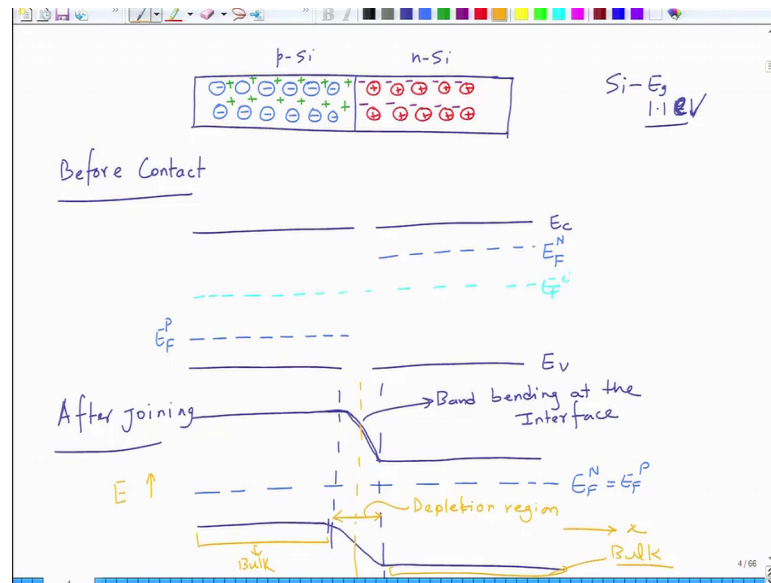 p-Si n-Si
Si - Eg
1.1 eV
Before Contact
Ec
E_F^N
E_F^i
E_F^P
Ev
After joining
Band bending at the
Interface
E ↑
E_F^N = E_F^P
Depletion region
x
Bulk
Bulk
4 / 66